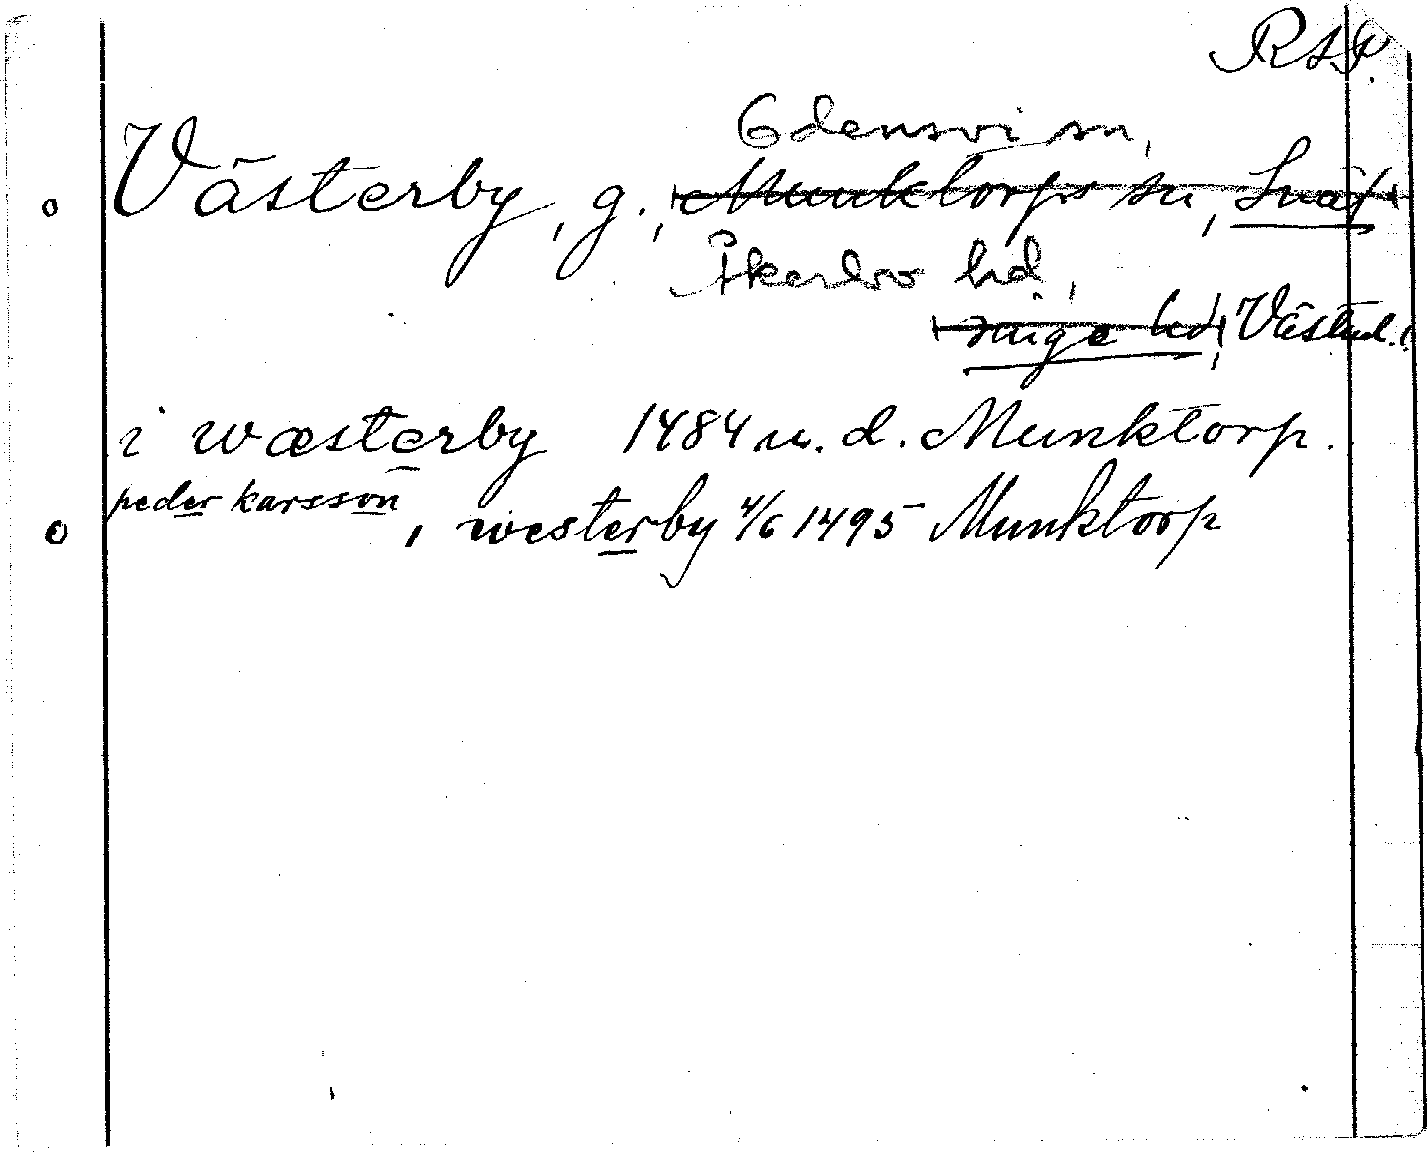 RAP.
Edensvi sn,
Västerby, g., Munktorps sn, Snäf-
Åkerbo hd,
ringe hd, Västml.
i wæsterby 1484 u. d. Munktorp.
peder karsson
, westerby 4/6 1495 Munktorp